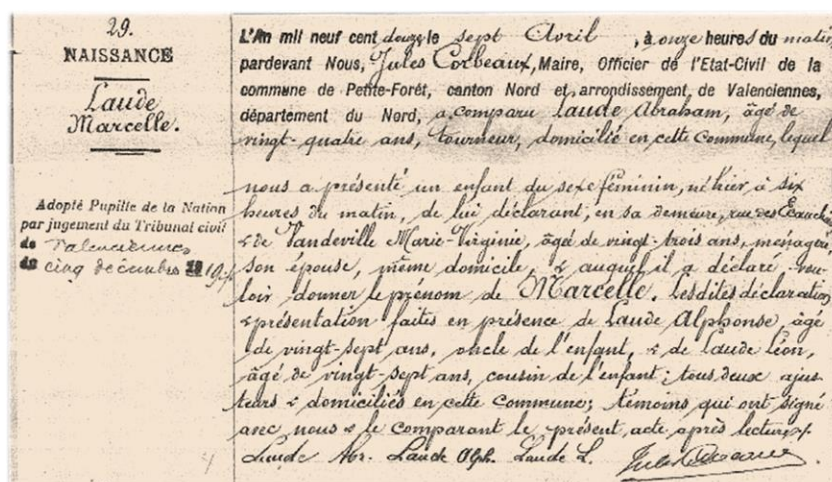 29.
NAISSANCE
Laude
Marcelle.
Adopté Pupille de la Nation
par jugement du Tribunal civil
de Valenciennes
du cinq décembre 19
L'An mil neuf cent douze le sept Avril, à onze heures du matin
pardevant Nous, Jules Corbeaux, Maire, Officier de l'Etat-Civil de la
commune de Petite-Forêt, canton Nord et arrondissement de Valenciennes,
département du Nord, a comparu Laude Abraham, âgé de
vingt-quatre ans, tourneur, domicilié en cette commune, lequel
nous a présenté un enfant du sexe féminin, né hier à six
heures du matin, de lui déclarant, en sa demeure, rue des
& de Vandeville Marie-Virginie, âgée de vingt-trois ans, ménagère
son épouse, même domicile, & auquel il a déclaré vou-
loir donner le prénom de Marcelle. Lesdites déclaration
& présentation faites en présence de Laude Alphonse, âgé
de vingt-sept ans, oncle de l'enfant, & de Laude Léon,
âgé de vingt-sept ans, cousin de l'enfant; tous deux ajus-
teurs & domiciliés en cette commune; témoins qui ont signé
avec nous & le comparant le présent acte après lecture.
Laude Abr. Laude Alph. Laude L. Jules Corbeaux